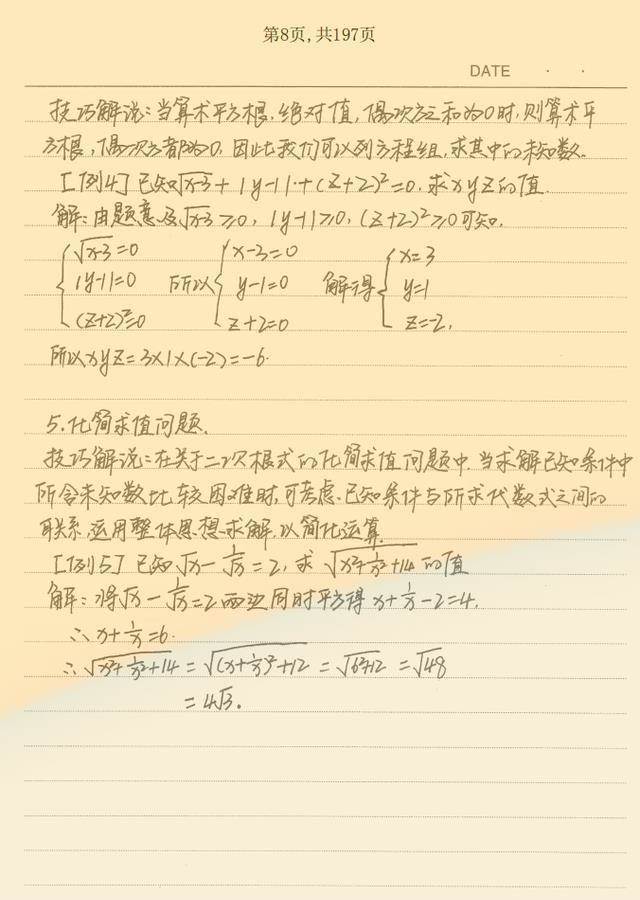 第8页,共197页
DATE · ·
技巧解说:当算术平方根,绝对值,偶次方之和为0时,则算术平
方根,偶次方都为0,因此我们可以列方程组,求其中的未知数。
[例4]已知√(x-3)+|y-1|+(z+2)²=0,求xyz的值.
解:由题意及√(x-3)≥0,|y-1|≥0,(z+2)²≥0可知,
{√(x-3)=0 {x-3=0 {x=3
|y-1|=0 所以 y-1=0 解得 y=1
(z+2)²=0 z+2=0 z=-2,
所以xyz=3×1×(-2)=-6.
5.化简求值问题.
技巧解说:在关于二次根式的化简求值问题中,当求解已知条件中
所含未知数比较困难时,可考虑已知条件与所求代数式之间的
联系,运用整体思想求解,以简化运算.
[例5]已知√x-1/√x=2,求√(x²+1/x²+14)的值
解:将√x-1/√x=2两边同时平方得x+1/x-2=4,
∴x+1/x=6.
∴√(x²+1/x²+14)=√((x+1/x)²+12)=√(6²+12)=√48
=4√3.